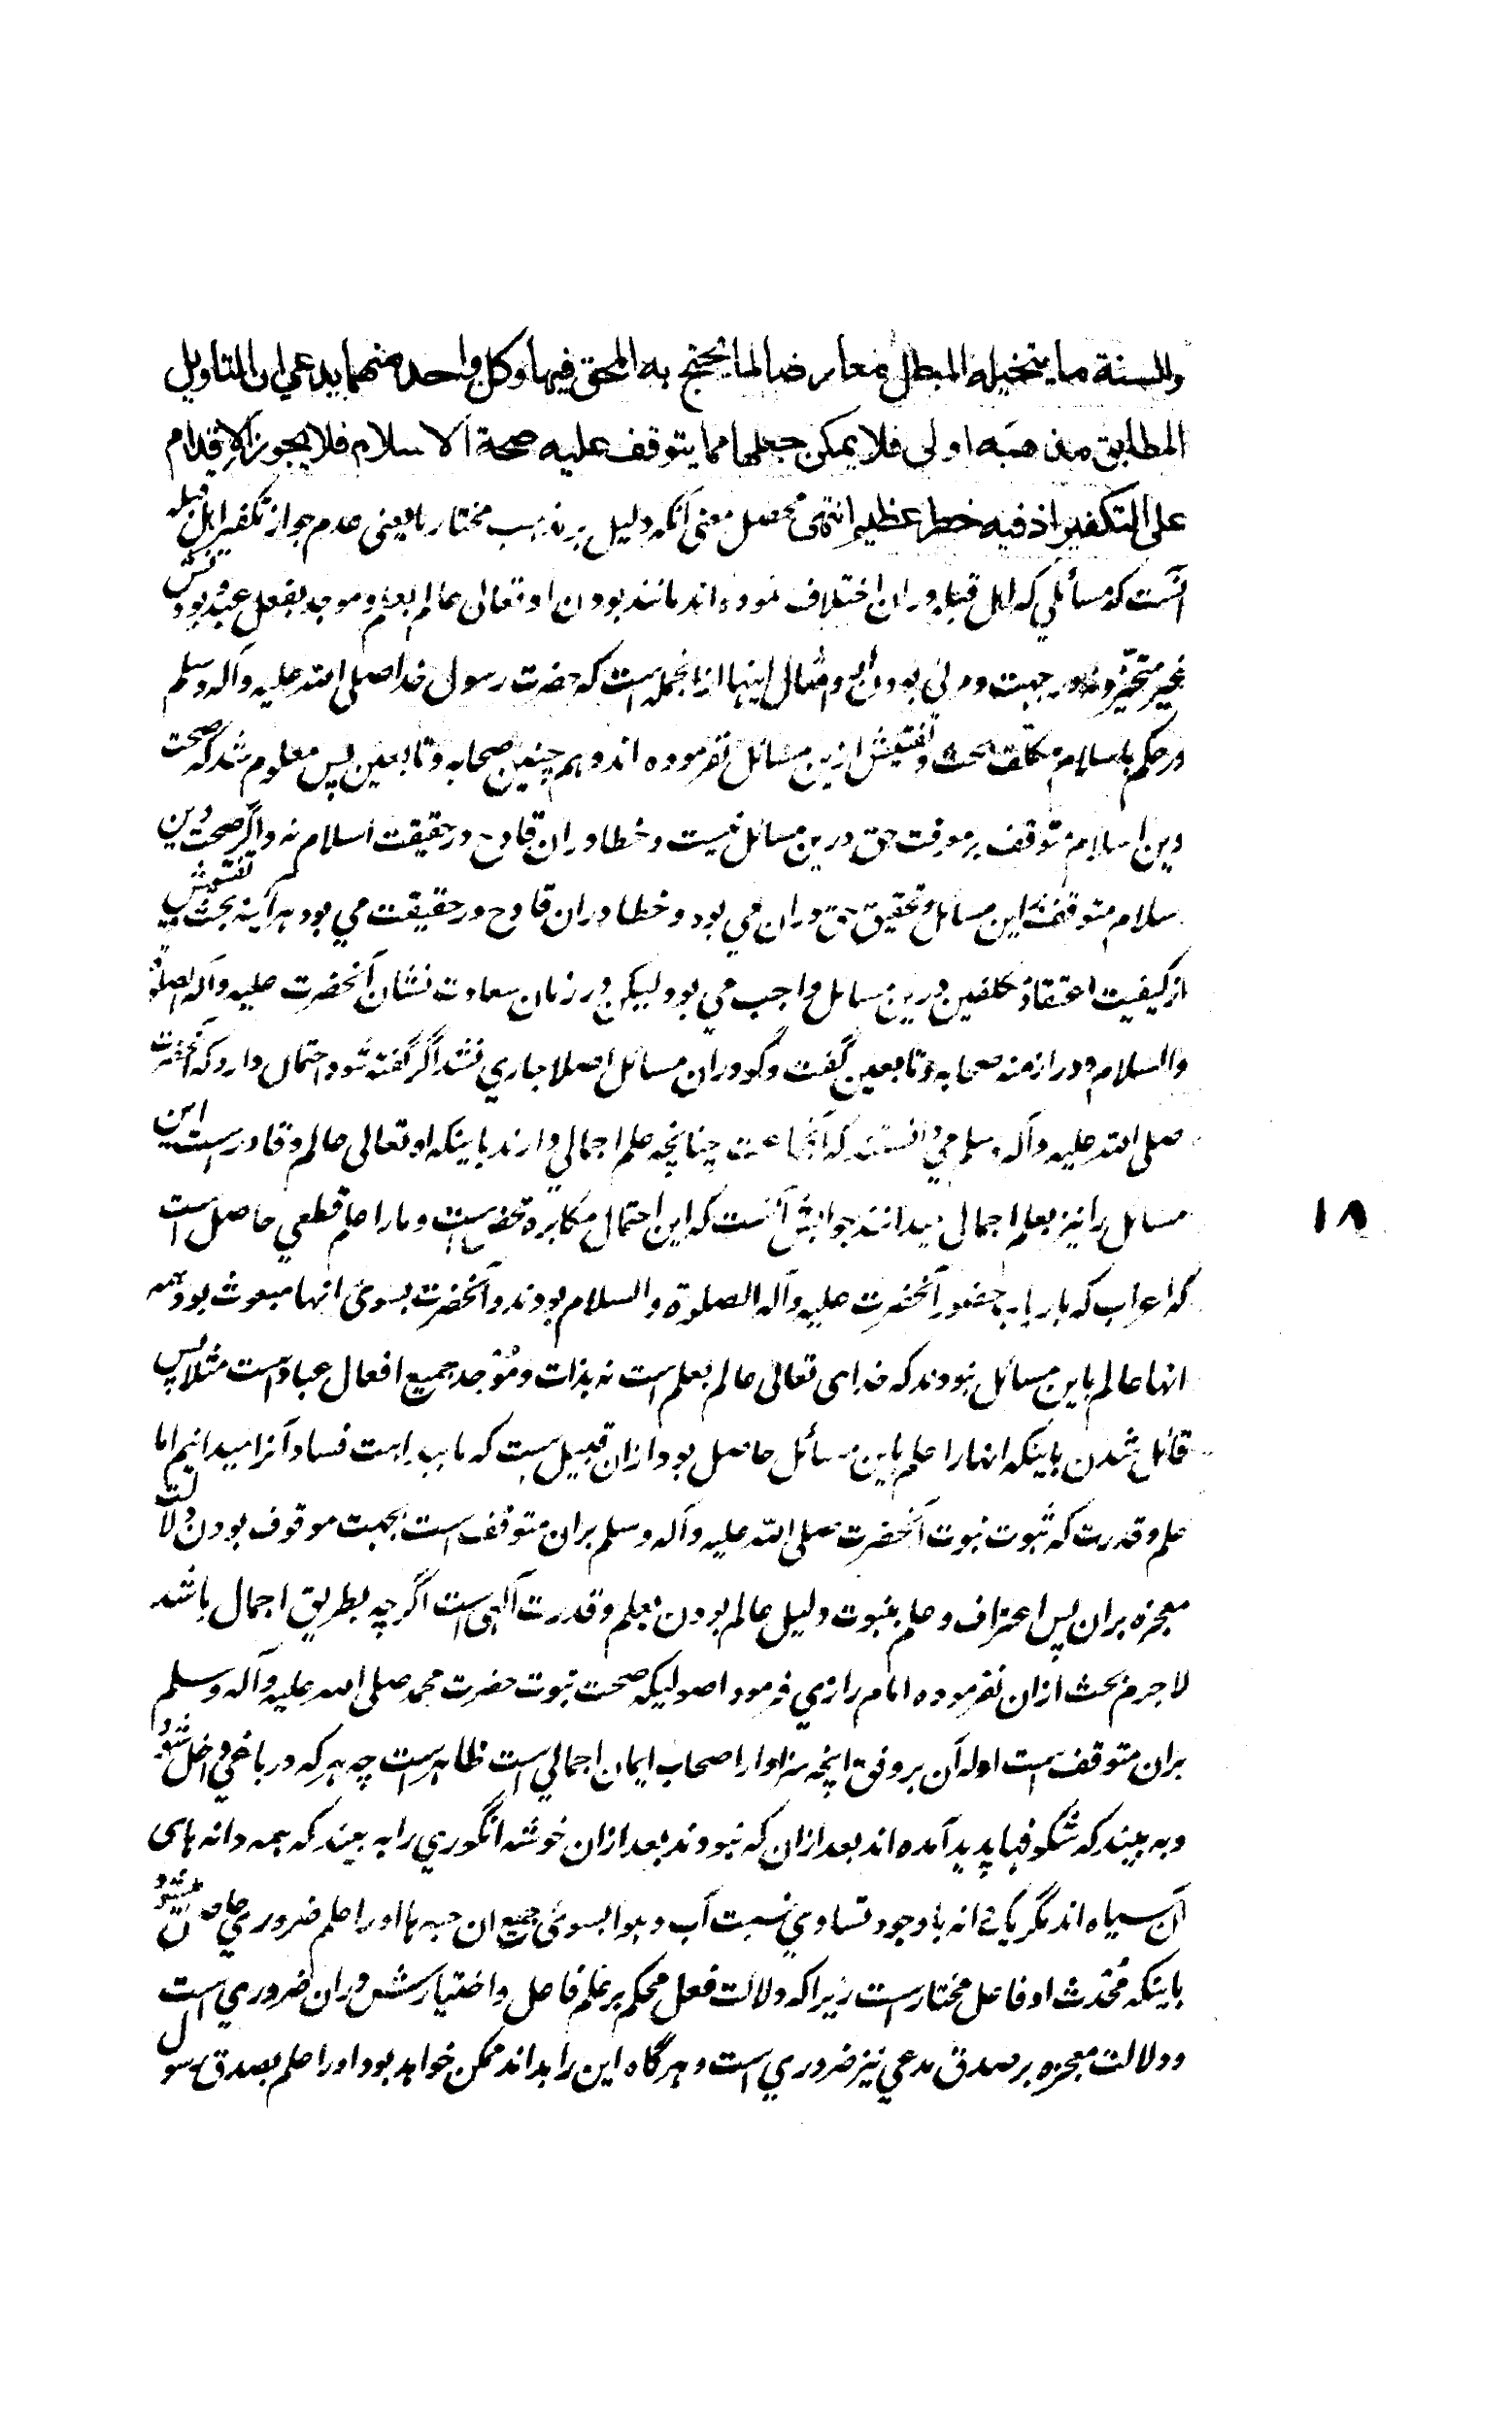 والسنة ما يتخيله المبطل معارضا لما يحتج به المحق فيها وكل واحد منهما يدعي ان التاويل
المطابق لمذهبه اولى فلا يمكن جعلها مما يتوقف عليه صحة الاسلام فلا يجوز الاقدام
على التكفير اذ فيه خطر عظيم انتهى محصل معنى آنكه دليل بر مذهب مختار ما يعنى عدم جواز تكفير اهل قبله
آنست كه مسائلي كه اهل قبله دران اختلاف نموده اند مانند بودن او تعالى عالم بعلم وموجد بفعل عبد وبودنش
غير متحيز ونه در جهت ومرئي بودن او وامثال اينها ازانجمله است كه حضرت رسول خدا صلى الله عليه وآله وسلم
در حكم باسلام مكلف بحث وتفتيش ازين مسائل نفرموده اند وهم چنين صحابه وتابعين پس معلوم شد كه صحت
دين اسلام متوقف بر معرفت حق درين مسائل نيست وخطا دران قادح در حقيقت اسلام نه واگر صحت دين
سلام متوقف اين مسائل وتحقيق حق دران مي بود وخطا دران قادح در حقيقت مي بود هر آينه بحث وتفتيش
از كيفيت اعتقاد مكلفين درين مسائل واجب مي بود ليكن در زمان سعادت نشان آنحضرت عليه وآله الصلوة
والسلام ودر ازمنه صحابه وتابعين گفت وگو دران مسائل اصلا جاري نشد اگر گفته شود احتمال دارد كه آنحضرت
صلى الله عليه وآله وسلم مي دانستند كه آنجماعت چنانچه علم اجمالي دارند باينكه او تعالى عالم وقادر است اين
مسائل را نيز بعلم اجمالى ميدانند جوابش آنست كه اين احتمال مكابره محض است وما را علم قطعي حاصل است
كه اعراب كه بارياب حضور آنحضرت عليه وآله الصلوة والسلام بودند وآنحضرت بسوى انها مبعوث بود همه
انها عالم باين مسائل نبودند كه خداى تعالى عالم بعلم است نه بذات وموجد جميع افعال عباد است مثلا پس
قائل شدن باينكه انها را علم باين مسائل حاصل بود ازان قبيل است كه ما ببداهت فساد آنرا ميدانيم اما
علم وقدرت كه ثبوت نبوت آنحضرت صلى الله عليه وآله وسلم بران متوقف است بجهت موقوف بودن دلالت
معجزه بران پس اعتراف وعلم بنبوت دليل عالم بودن بعلم وقدرت الهى است اگرچه بطريق اجمال باشد
لاجرم بحث ازان نفرموده امام رازي فرمود اصوليكه صحت نبوت حضرت محمد صلى الله عليه وآله وسلم
بران متوقف است ادله آن بر وفق انچه سزاوار اصحاب ايمان اجمالي است ظاهر است چه هر كه در باغي داخل شود
وبه بيند كه شكوفها پديد آمده اند بعد ازان كه نبودند بعد ازان خوشه انگوري را به بيند كه همه دانه هاى
آن سياه اند مگر يك دانه با وجود تساوي نسبت آب وهوا بسوى جميع ان حبه ها او را علم ضروري حاصل ميشود
باينكه محدث او فاعل مختار است زيرا كه دلالت فعل محكم بر علم فاعل واختيارش دران ضروري است
ودلالت معجزه بر صدق مدعي نيز ضروري است وهرگاه اين را بداند ممكن خواهد بود او را علم بصدق رسول
١٨